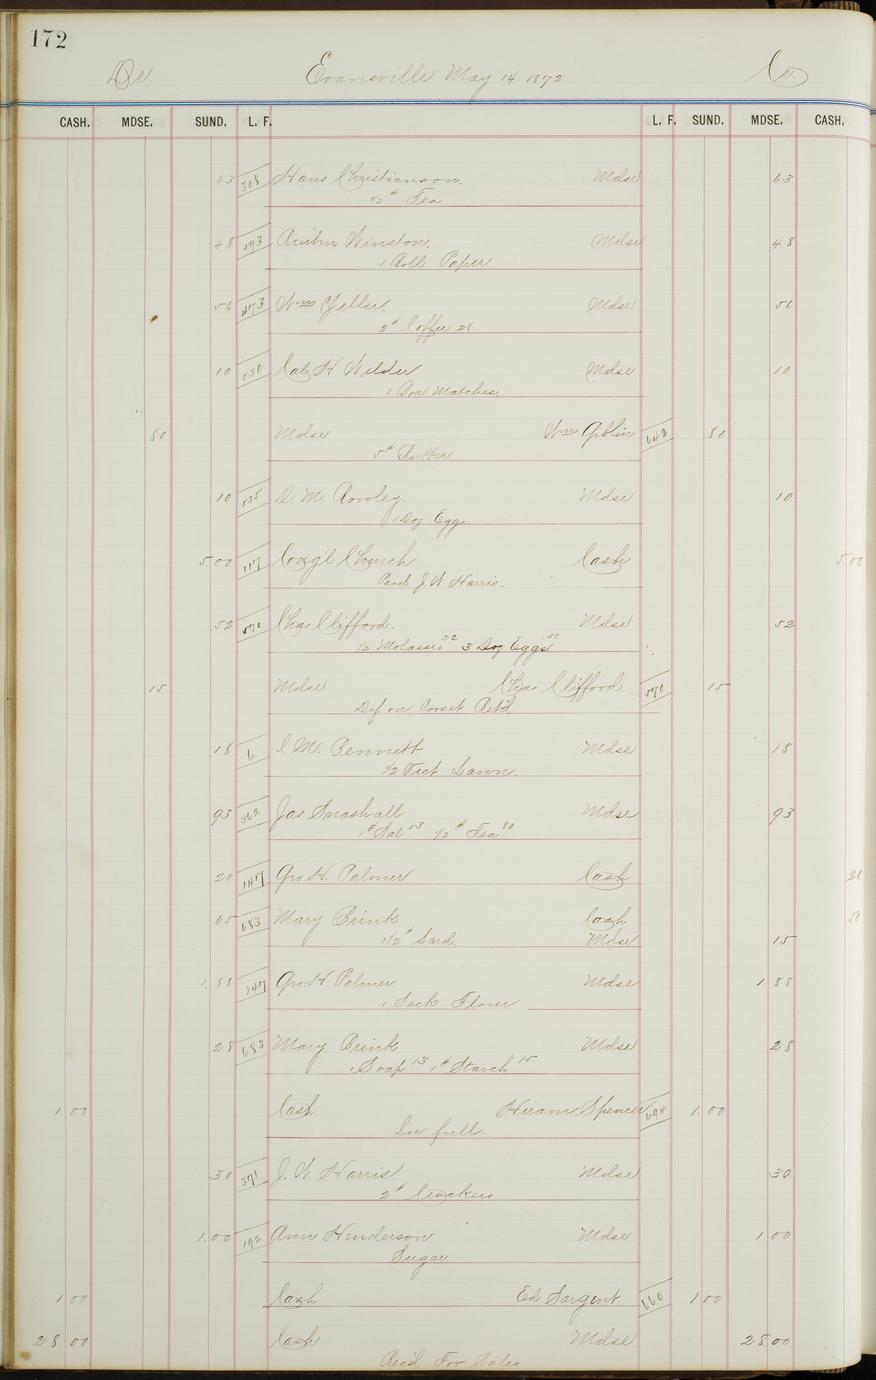 172
Dr. Evansville May 14. 1872 Cr.
CASH. MDSE. SUND. L. F. L. F. SUND. MDSE. CASH.
63 308 Hans Christianson. Mdse 63
1/2 # Tea
48 Winston. Mdse 48
1 Roll Paper
56 473 Wm Mdse 56
2# Coffee 28
10 530 H. Wilder Mdse 10
1 Box Matches
80 Mdse Wm Giblin 80
5# Butter
10 535 D. M. Rowley. Mdse 10
1 Doz Eggs
5.00 117 Cong'l Church Cash 5.00
Paid J. W. Harris.
52 570 Chas Clifford. Mdse 52
1/2 Molasses 22 3 Doz Eggs 30
15 Mdse Chas Clifford 570 15
Dif on Corset Ret'd
18 6 C. M. Bennett Mdse 18
1/2 Vict Lawn.
93 362 Jas Snashall Mdse 93
1# Sal 13 1/2 # Tea 80
20 147 Geo. H. Palmer Cash 20
65 683 Mary Brink Cash 50
1 1/2 # Lard. Mdse 15
1.88 147 Geo. H. Palmer Mdse 1 88
1 Sack Flour
28 683 Mary Brink Mdse 28
1 Soap 13 1# Starch 15
1.00 Cash Hiram Spencer 694 1.00
In full.
30 371 J. W. Harris. Mdse 30
2# Crackers
1.00 192 Ann Henderson Mdse 1 00
Sugar
1 00 Cash Ed Sargent. 660 1 00
28 00 Cash Mdse 28 00
Rec'd For Sales